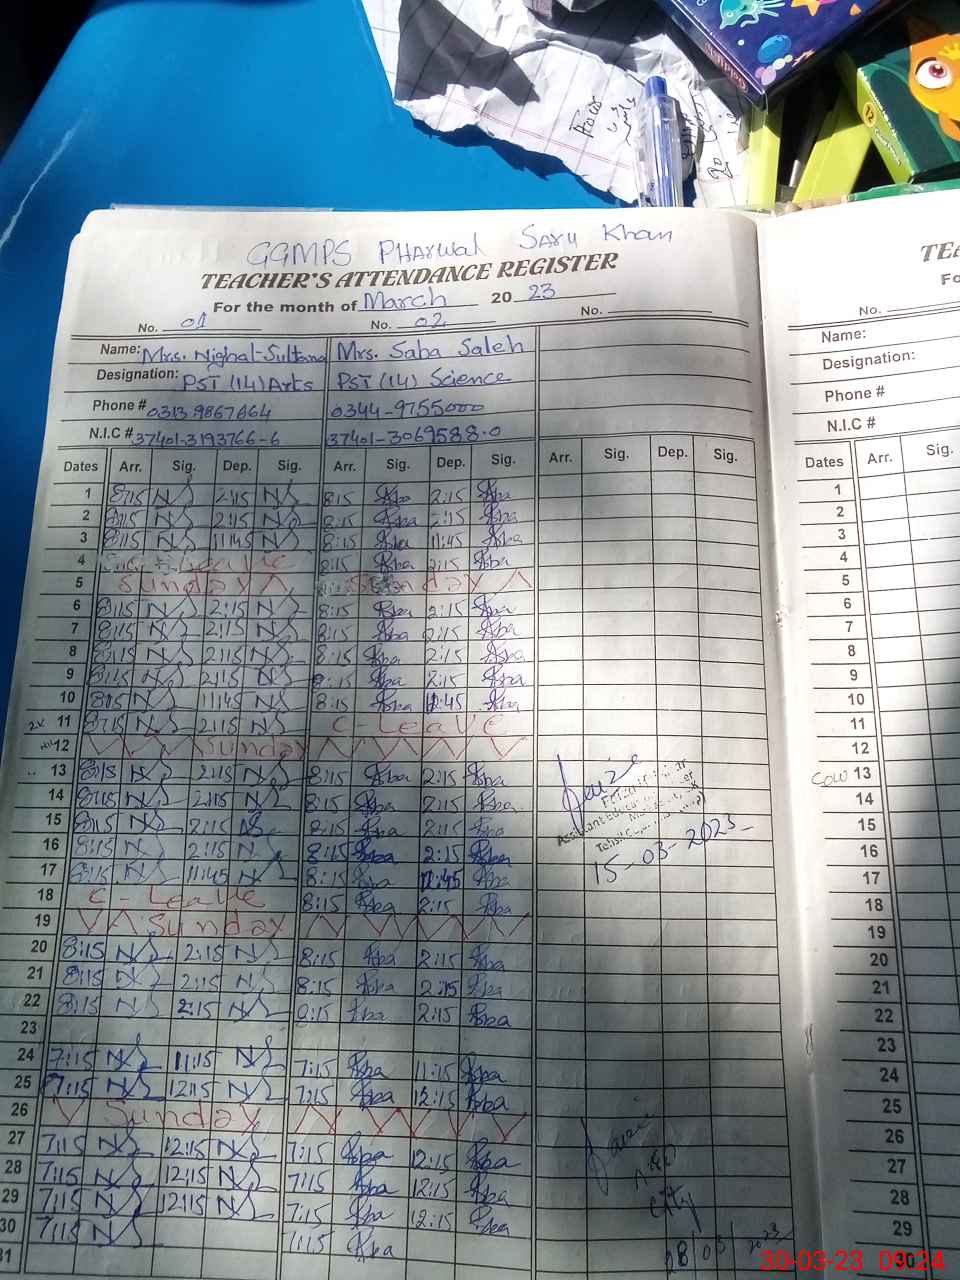 GGMPS PHARWAL SARU Khan
TEACHER'S ATTENDANCE REGISTER
For the month of March 20 23
No. 01 No. 02 No.
Name: Mrs. Nighat-Sultana Mrs. Saba Saleh
Designation: PST (14) Arts PST (14) Science
Phone # 0344-9755000
N.I.C # 37401-3193766-6 37401-3069588-0
Dates Arr. Sig. Dep. Sig. Arr. Sig. Dep. Sig. Arr. Sig. Dep. Sig.
1 8:15 NS 2:15 NS 8:15 Saba 2:15 Saba
2 8:15 NS 2:15 NS 8:15 Saba 2:15 Saba
3 8:15 NS 11:45 NS 8:15 Saba 11:45 Saba
4 Leave 8:15 Saba 2:15 Saba
5 Sunday Sunday
6 8:15 NS 2:15 NS 8:15 Saba 2:15 Saba
7 8:15 NS 2:15 NS 8:15 Saba 2:15 Saba
8 8:15 NS 2:15 NS 8:15 Saba 2:15 Saba
9 8:15 NS 2:15 NS 8:15 Saba 2:15 Saba
10 8:15 NS 11:45 NS 8:15 Saba 11:45 Saba
11 8:15 NS 2:15 NS C-Leave
12 Sunday
13 8:15 NS 2:15 NS 8:15 Saba 2:15 Saba
14 8:15 NS 2:15 NS 8:15 Saba 2:15 Saba
15 8:15 NS 2:15 NS 8:15 Saba 2:15 Saba
16 8:15 NS 2:15 NS 8:15 Saba 2:15 Saba
15-03-2023
17 8:15 NS 11:45 NS 8:15 Saba 11:45 Saba
18 C-Leave 8:15 Saba 2:15 Saba
19 Sunday
20 8:15 NS 2:15 NS 8:15 Saba 2:15 Saba
21 8:15 NS 2:15 NS 8:15 Saba 2:15 Saba
22 8:15 NS 2:15 NS 8:15 Saba 2:15 Saba
23
24 7:15 NS 11:15 NS 7:15 Saba 11:15 Saba
25 7:15 NS 12:15 NS 7:15 Saba 12:15 Saba
26 Sunday
27 7:15 NS 12:15 NS 7:15 Saba 12:15 Saba
28 7:15 NS 12:15 NS 7:15 Saba 12:15 Saba
29 7:15 NS 12:15 NS 7:15 Saba 12:15 Saba
30 7:15 NS 7:15 Saba
31
City
28/03/2023
TE
Fo
No.
Name:
Designation:
Phone #
N.I.C #
Dates Arr. Sig.
1
2
3
4
5
6
7
8
9
10
11
12
13
14
15
16
17
18
19
20
21
22
23
24
25
26
27
28
29
30
30-03-23 09:24